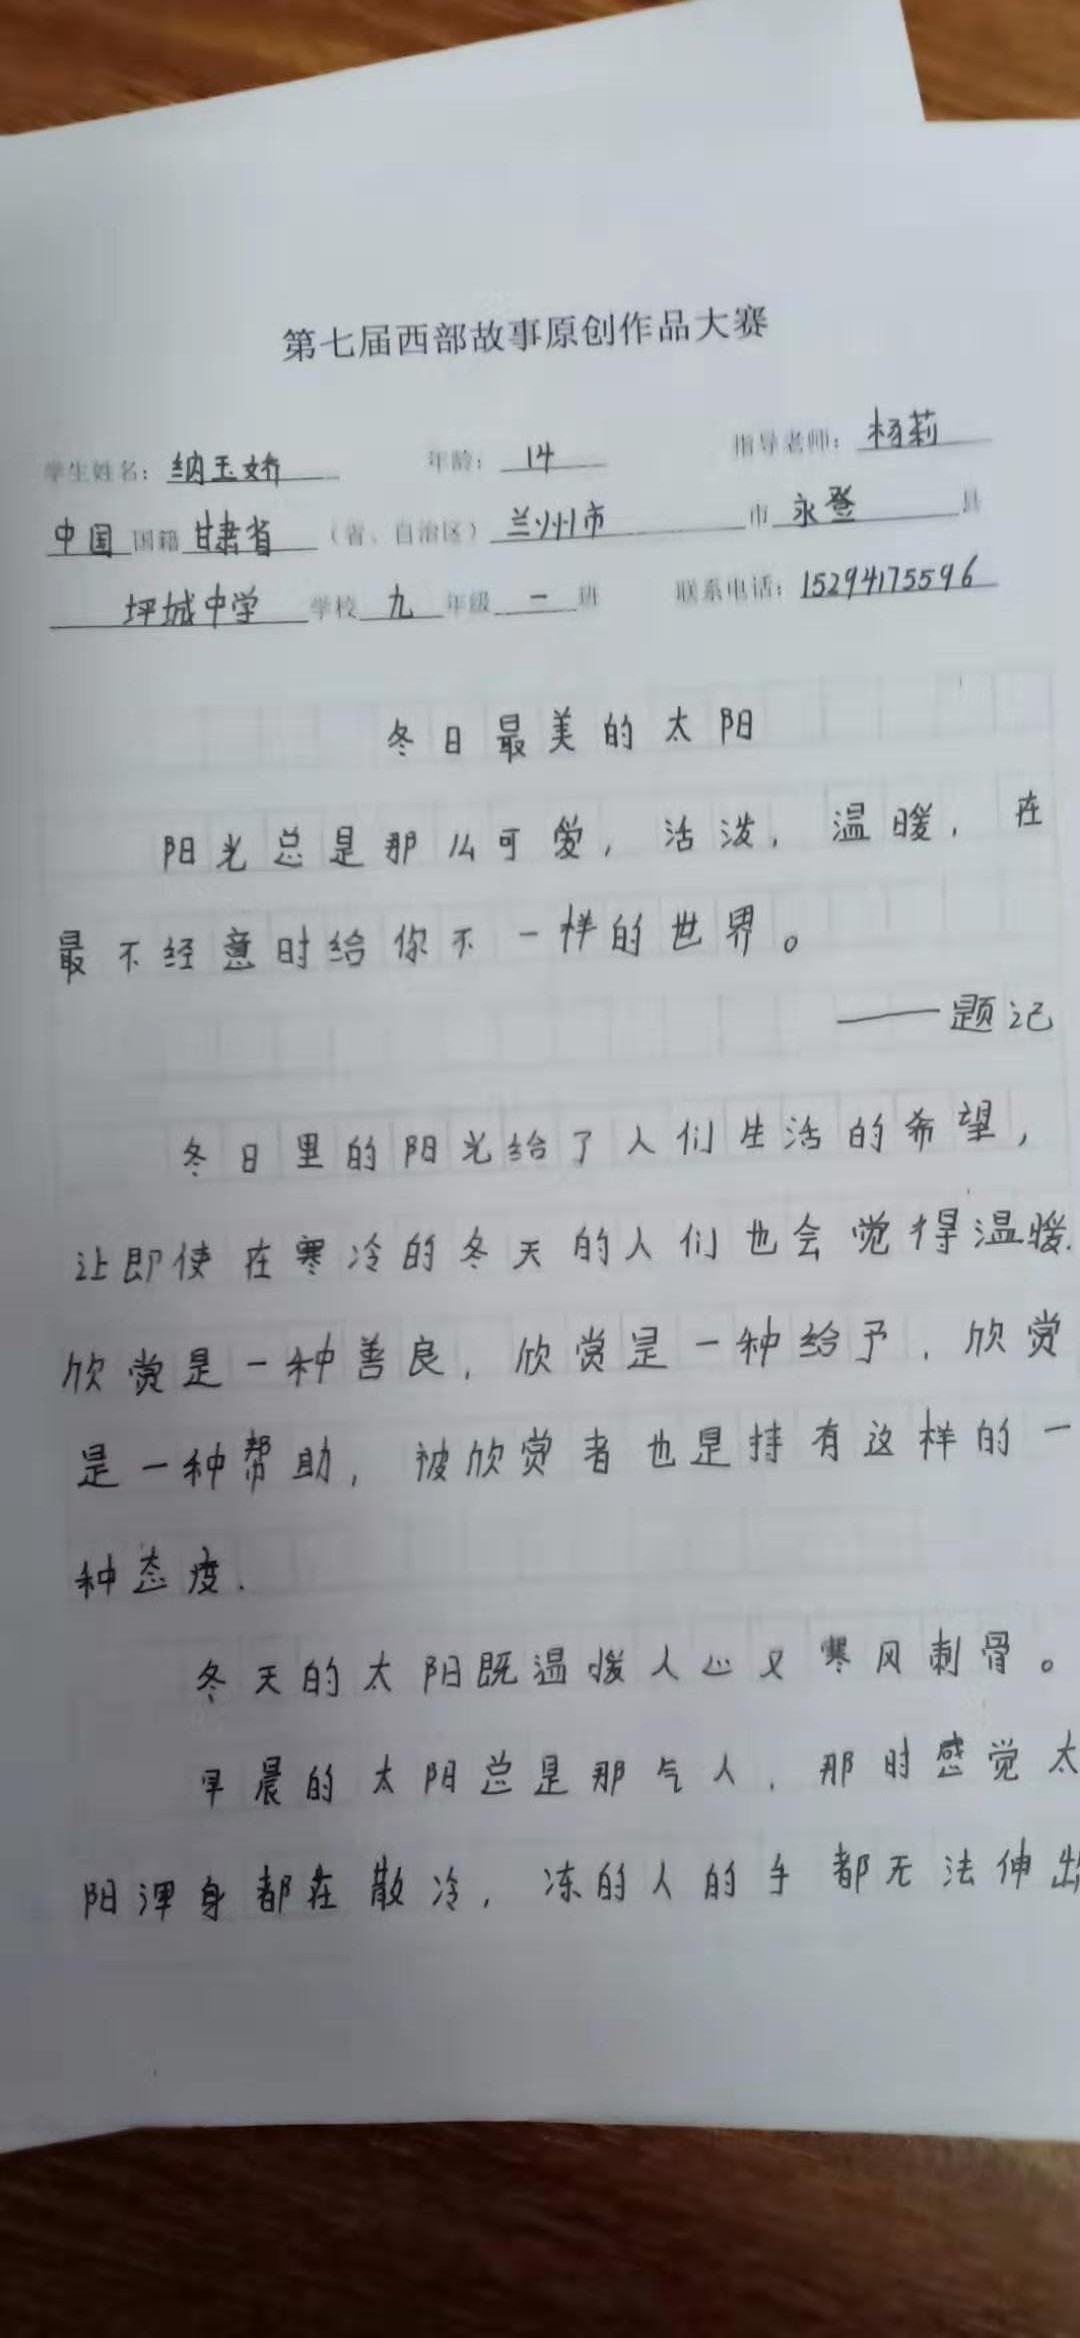 第七届西部故事原创作品大赛
学生姓名：纳玉娇 年龄：14 指导老师：杨莉
中国国籍甘肃省（省、自治区）兰州市市永登县
坪城中学学校九年级一班 联系电话：15294175596
冬日最美的太阳
阳光总是那么可爱，活泼，温暖，在
最不经意时给你不一样的世界。
——题记
冬日里的阳光给了人们生活的希望，
让即使在寒冷的冬天的人们也会觉得温暖.
欣赏是一种善良，欣赏是一种给予，欣赏
是一种帮助，被欣赏者也是持有这样的一
种态度.
冬天的太阳既温暖人心又寒风刺骨。
早晨的太阳总是那气人，那时感觉太
阳浑身都在散冷，冻的人的手都无法伸出